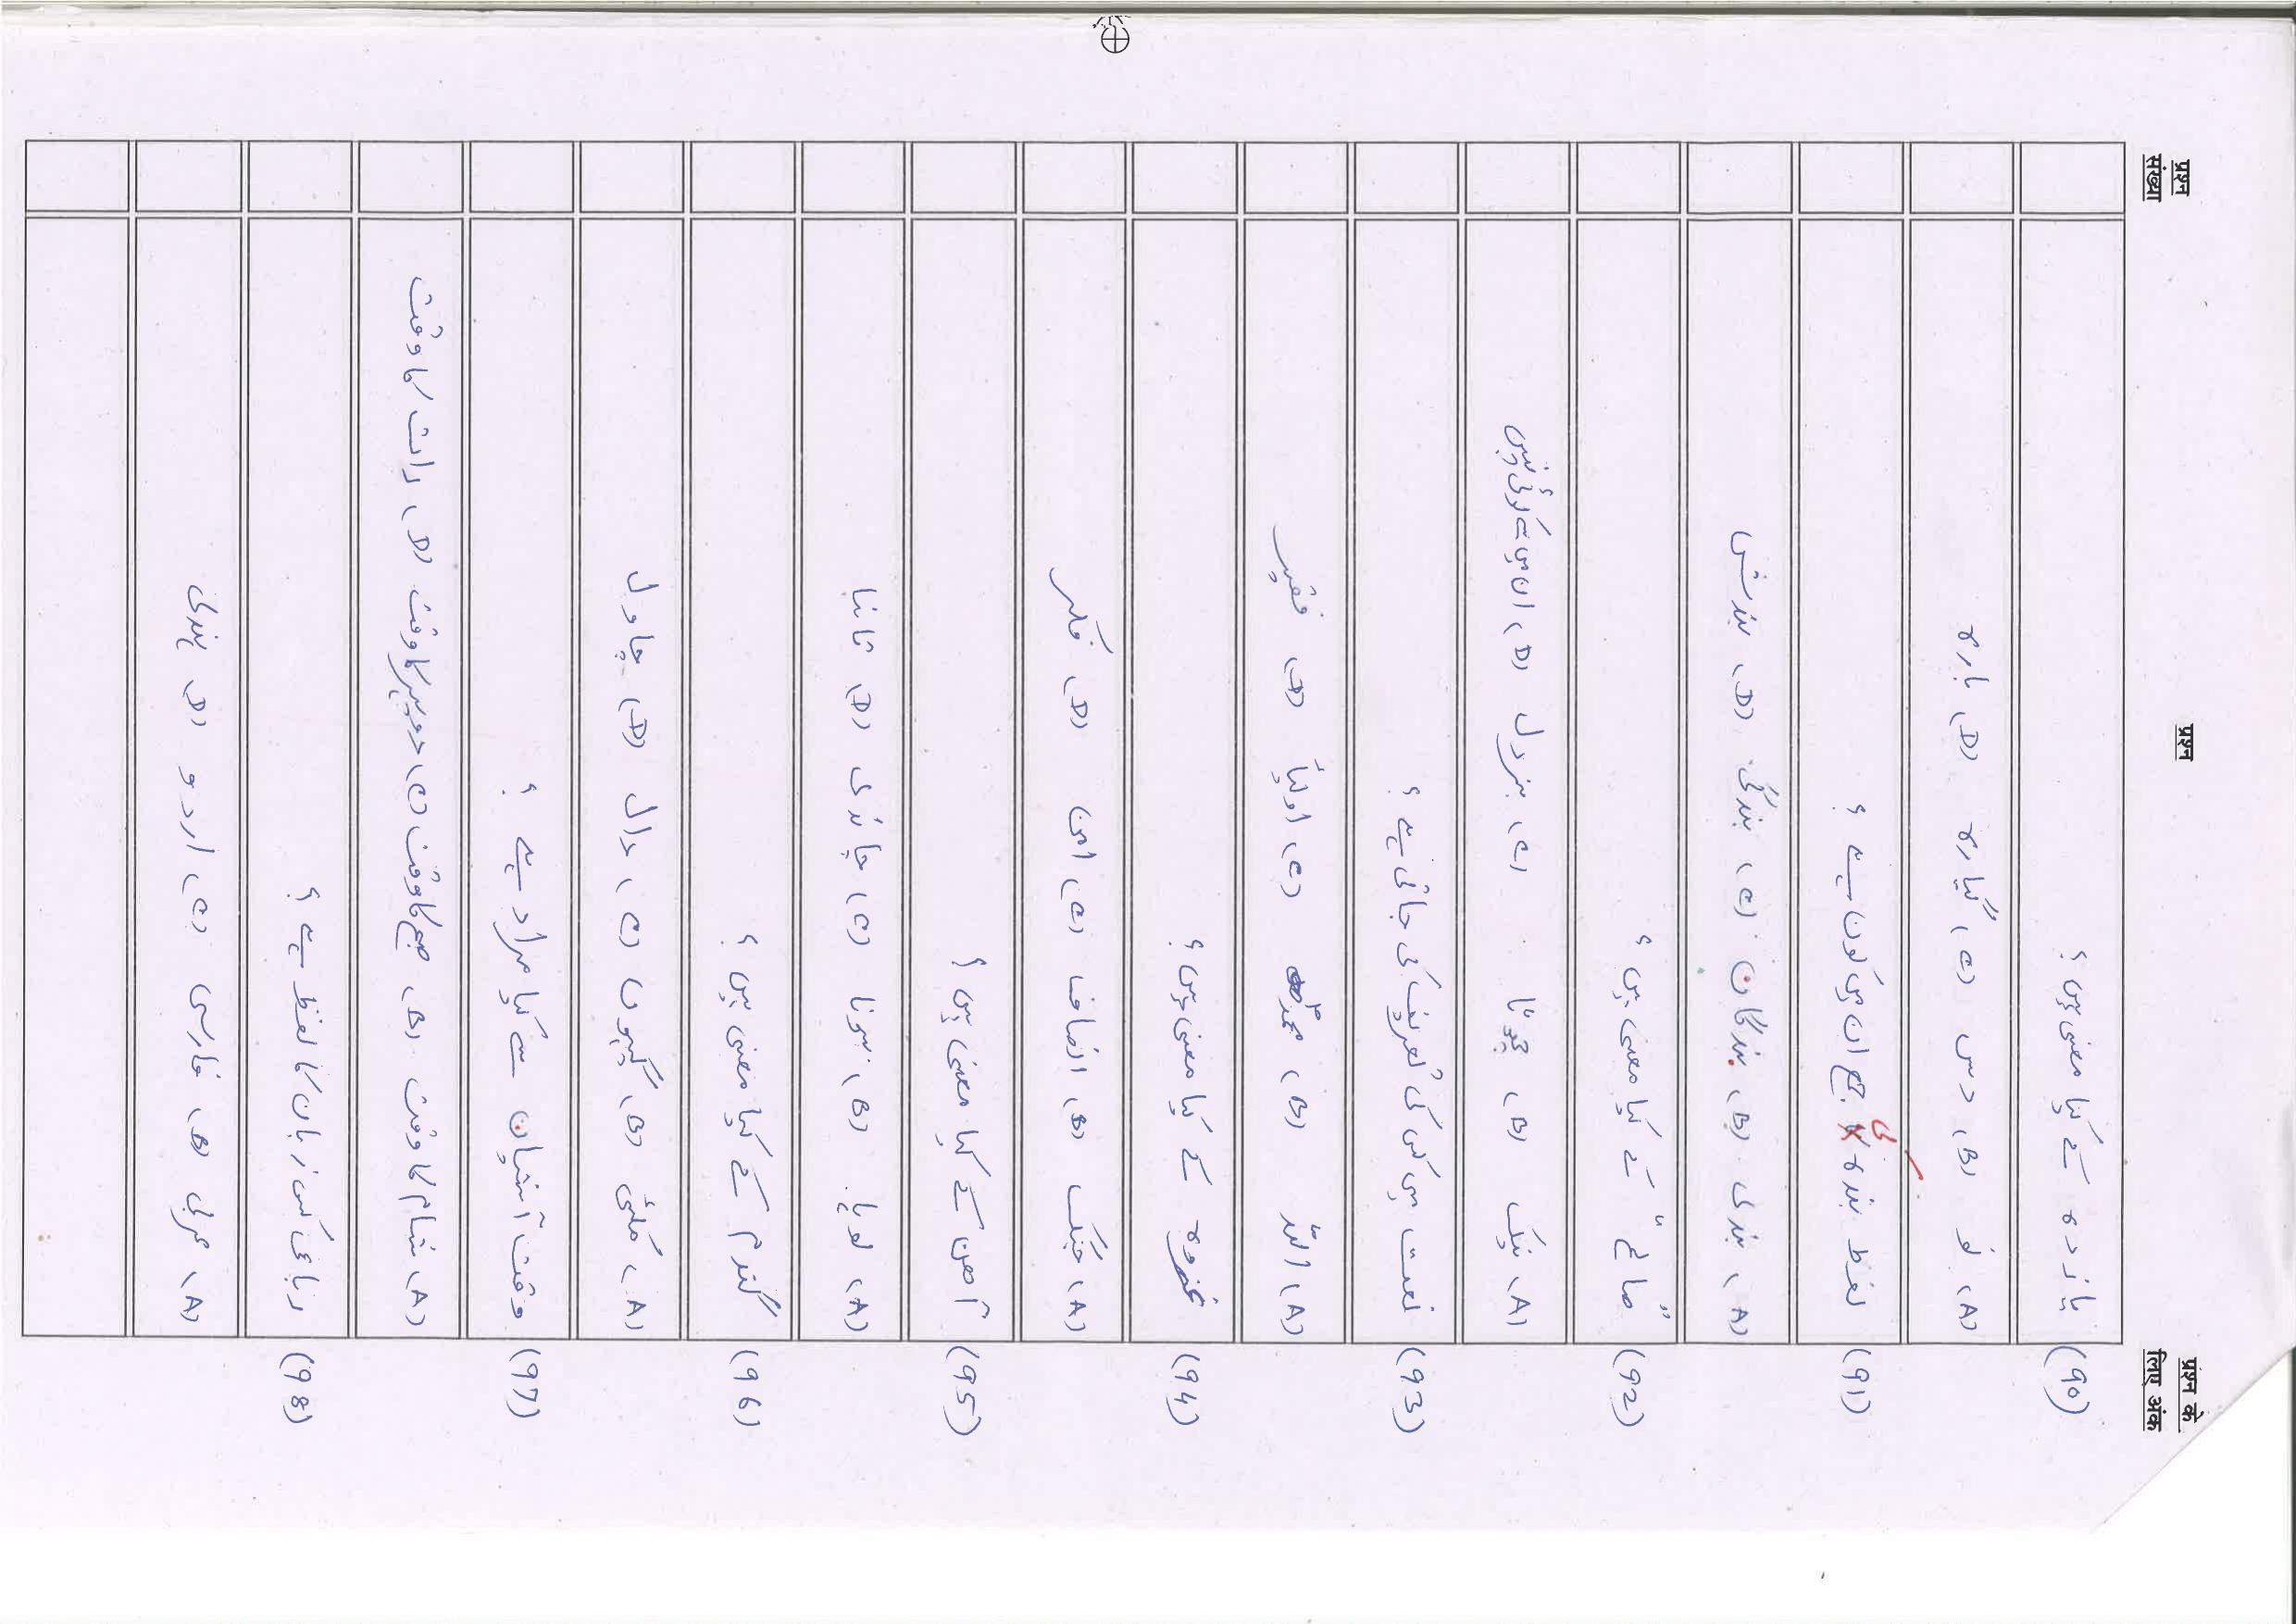 प्रश्न संख्या
प्रश्न
प्रश्न के लिए अंक
(90) یازدہ کے کیا معنی ہیں ؟
(A) نو (B) دس (C) گیارہ (D) بارہ
(91) لفظ بندہ کی جمع ان میں کون سی ہے ؟
(A) بندی (B) بندگان (C) بندگی (D) بندش
(92) "صالح" کے کیا معنی ہیں ؟
(A) نیک (B) جھوٹا (C) بزدل (D) ان میں سے کوئی نہیں
(93) نعت میں کس کی تعریف کی جاتی ہے ؟
(A) اللہ (B) محمدؐ (C) اولیأ (D) فقیر
(94) کے کیا معنی ہیں ؟
(A) جنگ (B) انصاف (C) امن (D) فکر
(95) آھن کے کیا معنی ہیں ؟
(A) لوہا (B) سونا (C) چاندی (D) تانبا
(96) گندم کے کیا معنی ہیں ؟
(A) مکئی (B) گیہوں (C) دال (D) چاول
(97) وقت آشیان سے کیا مراد ہے ؟
(A) شام کا وقت (B) صبح کا وقت (C) دوپہر کا وقت (D) رات کا وقت
(98) رباعی کس زبان کا لفظ ہے ؟
(A) عربی (B) فارسی (C) اردو (D) ہندی